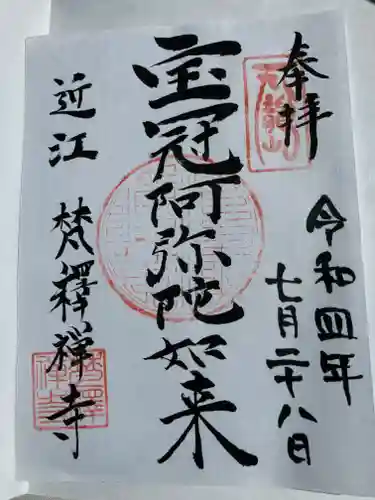 奉拝
令和四年
七月二十八日
宝冠阿弥陀如来
近江
梵釋禅寺
天龍山